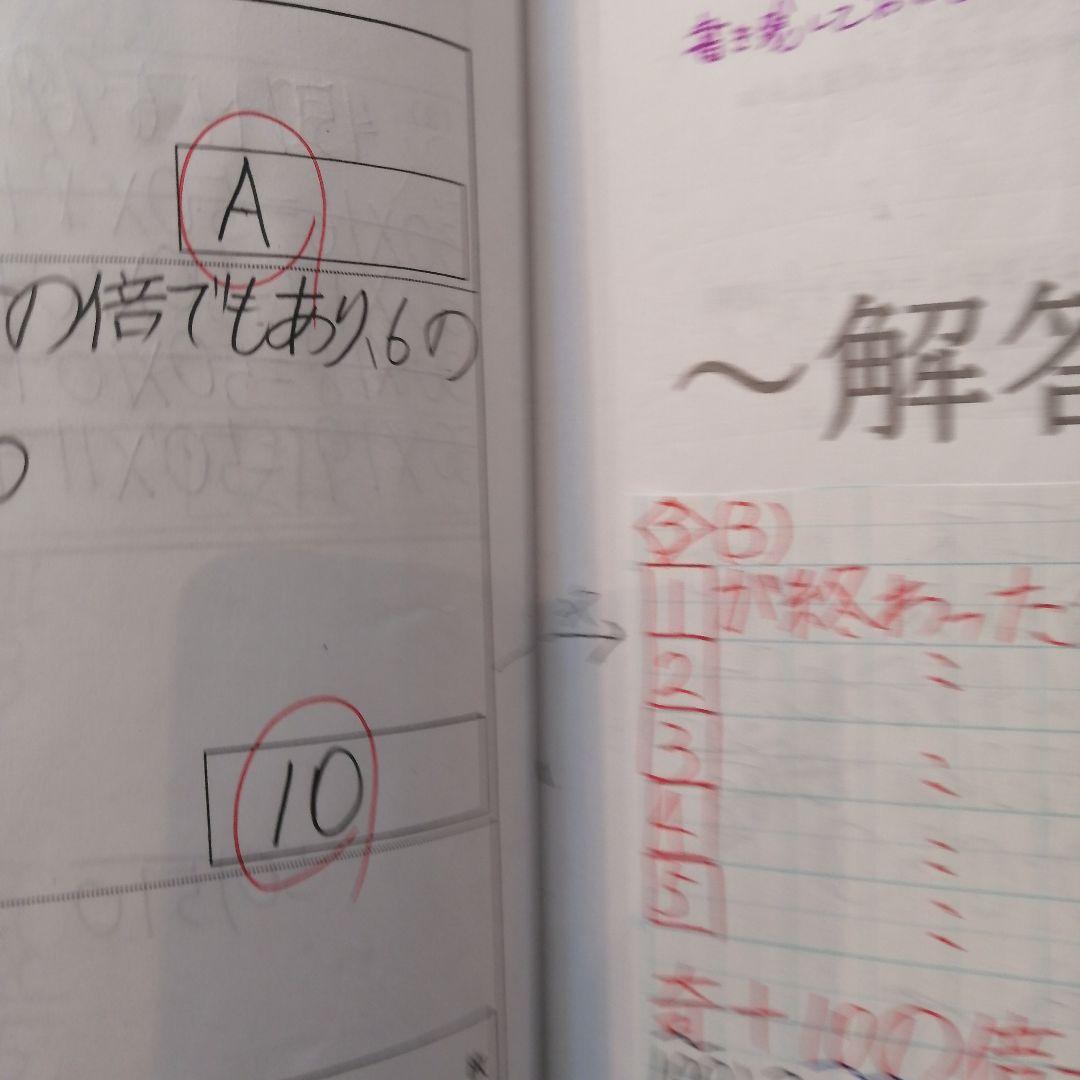 A
の倍でもあり、6の
10
～解答
③B)
1が終わった
2 〃
3 〃
4 〃
5 〃
奇+10の倍